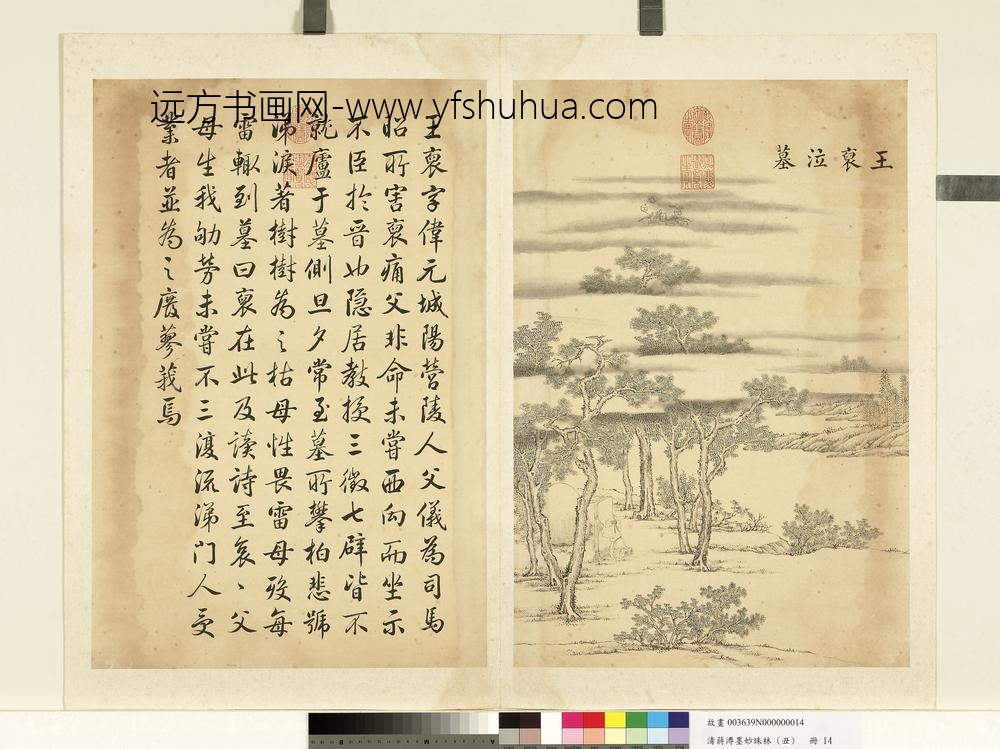 远方书画网-www.yfshuhua.com
王裒泣墓
王裒字偉元城陽營陵人父儀為司馬
昭所害裒痛父非命未嘗西向而坐示
不臣於晉也隐居教授三徵七辟皆不
就廬于墓側旦夕常至墓所攀柏悲號
涕淚著樹樹為之枯母性畏雷母歿每
雷輙到墓曰裒在此及讀詩至哀丶父
母生我劬劳未嘗不三復流涕门人受
業者並為之廢蓼莪焉
故畫 003639N000000014
清蔣溥墨妙珠林（丑） 冊 14